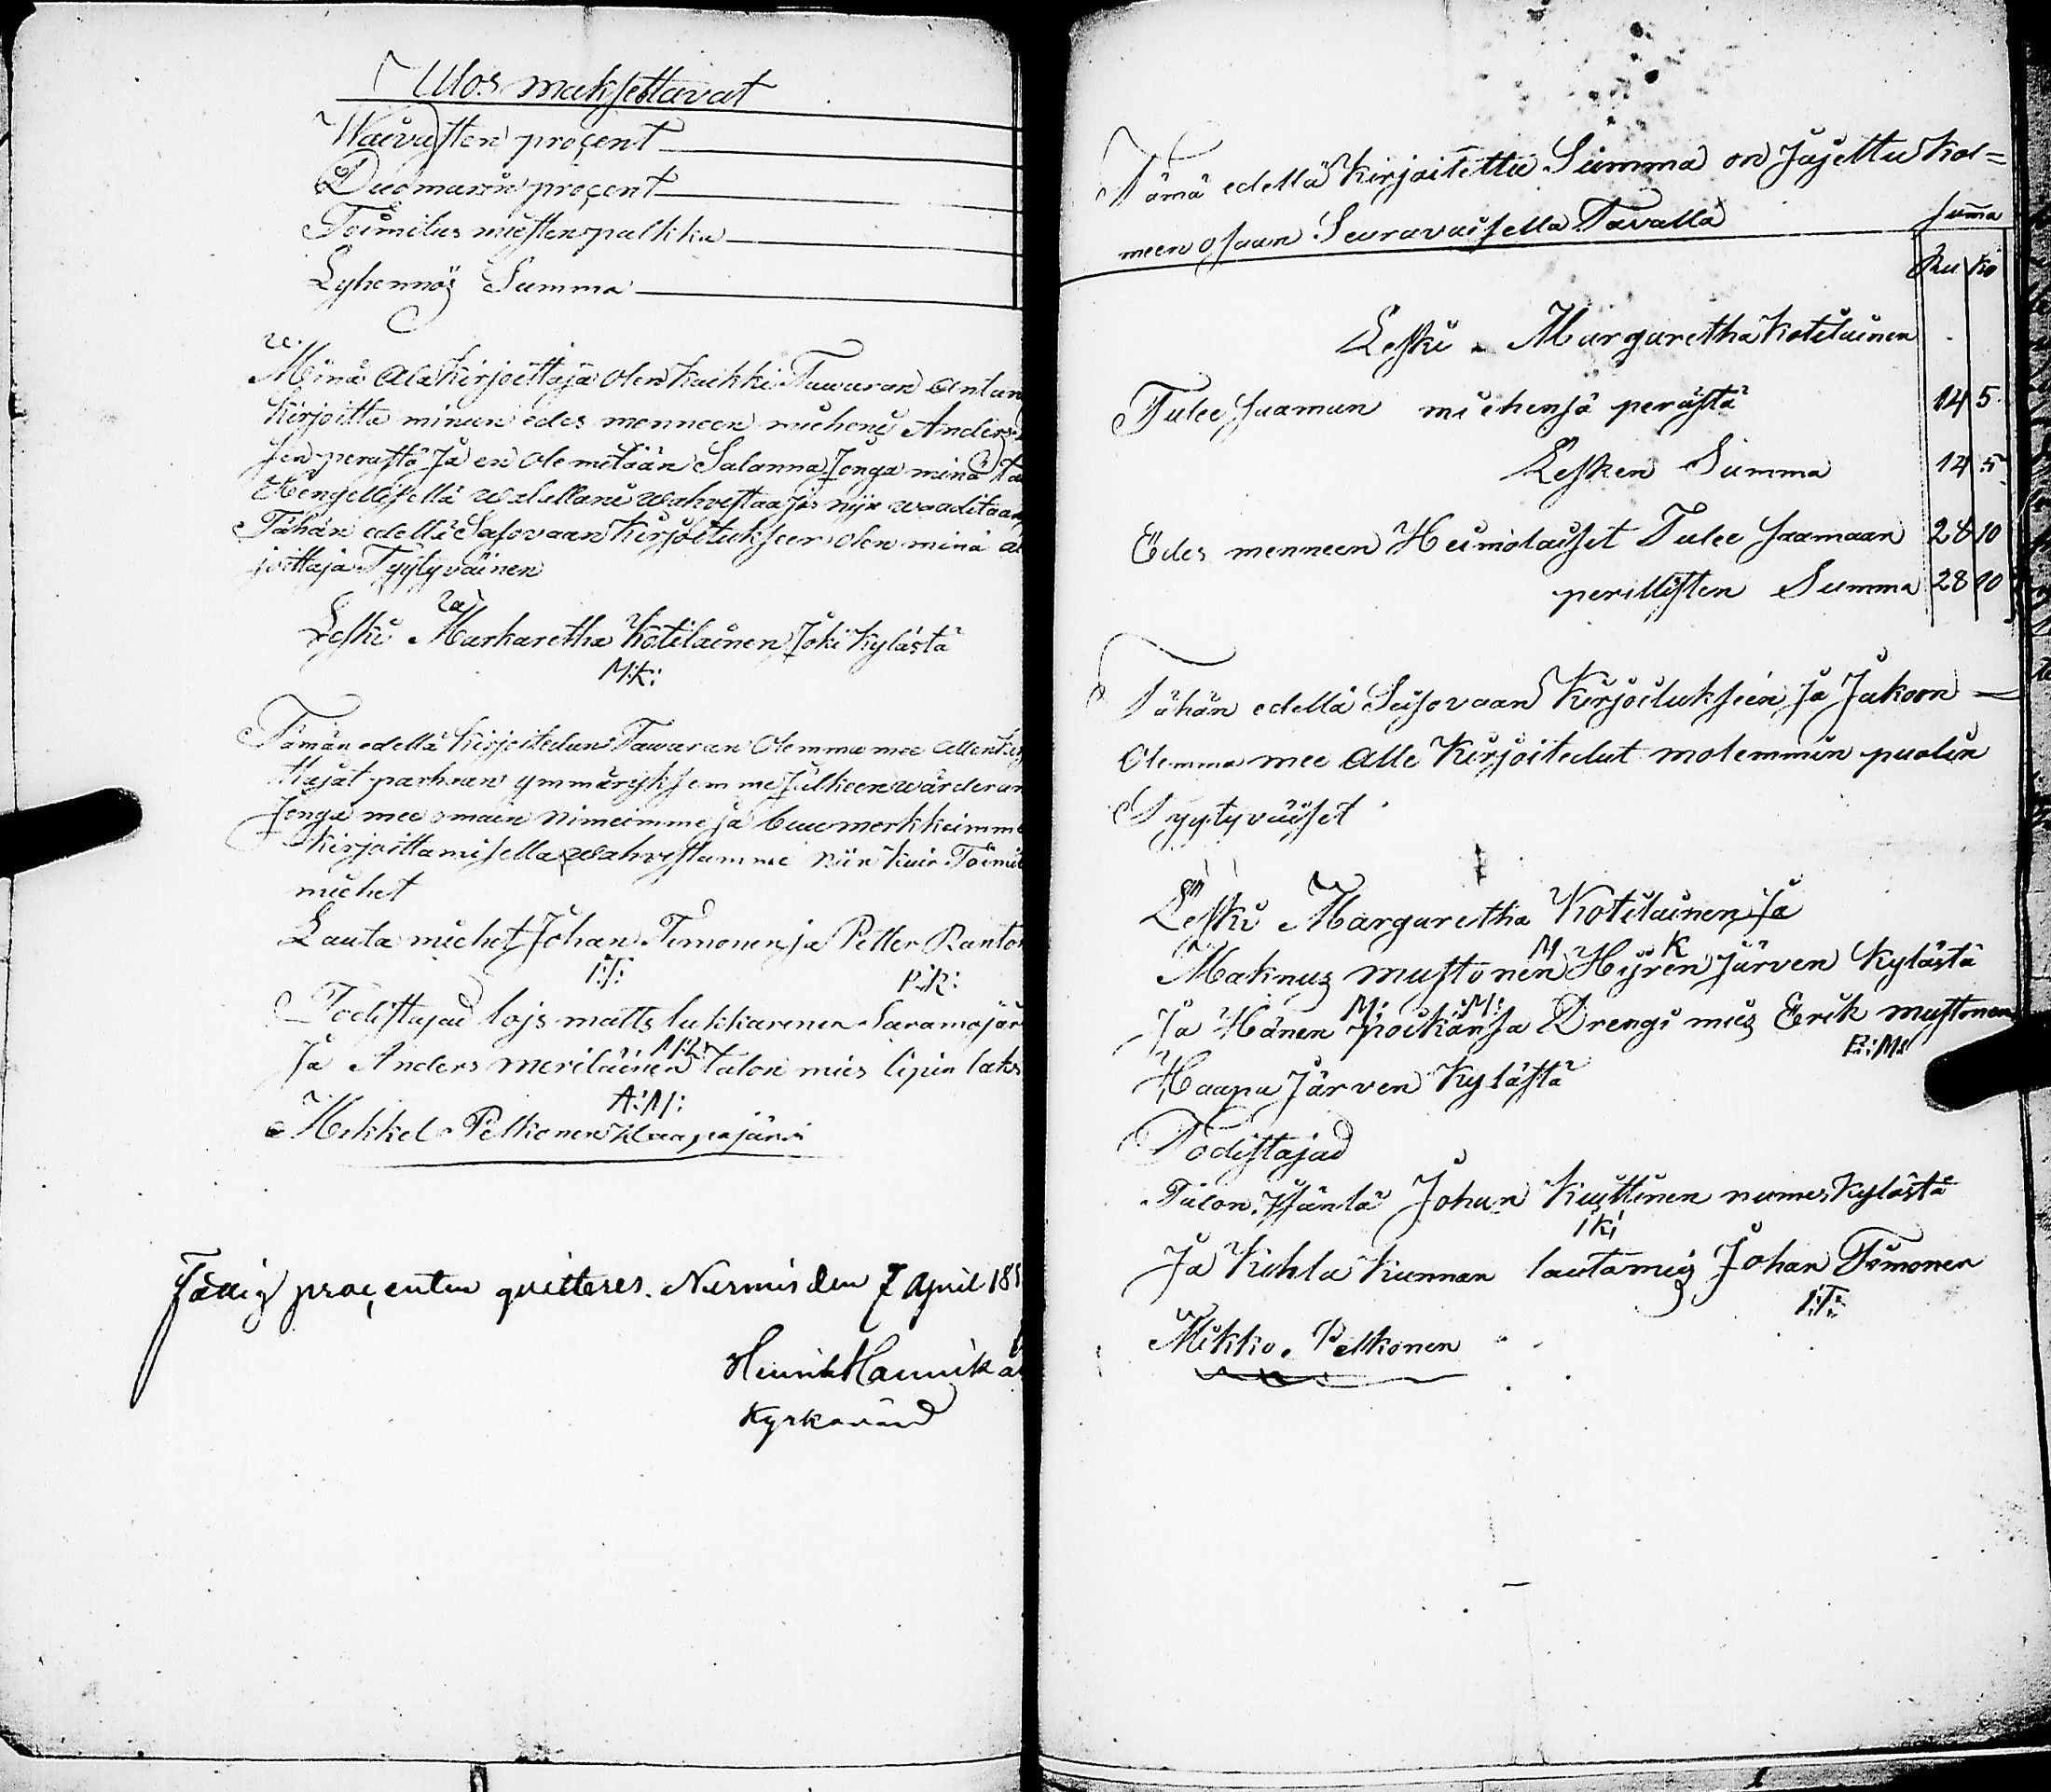 Ulos maksettavat
Waivasten proçent
Duomarin proçent
Toimitus miesten palkka
Lyhennös Summa
Minä Alakirjoittaja olen kaikki Tawaran antan
kirjoitta minun edes menneen mieheni Anders
sen perästä ja en ole mitään Salanna Jonga minä
Hengellisellä walallani wahvistaa jos niin waaditaan
Tähän edellä Saisovaan Kirjoitukseen olen minä al
joittaja Tyytyväinen
Leski Markaretha Kotilainen Joki kylästä
M:K:
Tämän edellä kirjoitedun Tawaran Olemma mee allenkir
ttajat parhaan ymmäryksemme Jälkeen wärderan
Jonga mee omain nimeimme ja buumerkkeimme
Kirjoittamisella wahvistamme niin kuin Toimit
miehet
Lauta miehet Johan Timonen ja Petter Ranto
I:T: P:R:
Todistajad lojs matts lukkarinen Saramojär
M:L:
Ja Anders meriläinen talon mies lipin laks
A:M:
Mikkel Pelkonen Haapajärvi
Fattig proçenten quitteres. Nurmis den 7 April 18
Henrik Hannikä
Kyrkovärd
Tämä edellä kirjoitettu Summa on Jajettu kol=
meen osaan Seuravaisella Tavalla Suma
Ru Ko
Leski Margaretha Kotilainen
Tulee saaman miehensä perästä 14 5
Lesken Summa 14 5
Edes menneen Heimolaiset Tulee saamaan 28 10
perillisten Summa 28 10
Tähän edellä Saisovaan Kirjoitukseen ja Jakoon
Olemma mee alle Kirjoitedut molemmin puolin
Tyytyväiset
Leski Margaretha Kotilainen ja
M K
Maknus mustonen Hijren järven kylästä
M: M:
Ja Hänen poikansa Drengi mies Erik mustonen
E:M:
Haapa Järven kylästä
Todistajad
Talon Isäntä Johan Kuittinen nurmes kylästä
I K
Ja Kihla kunnan lautamies Johan Timonen
I:T:
Mikko Pelkonen